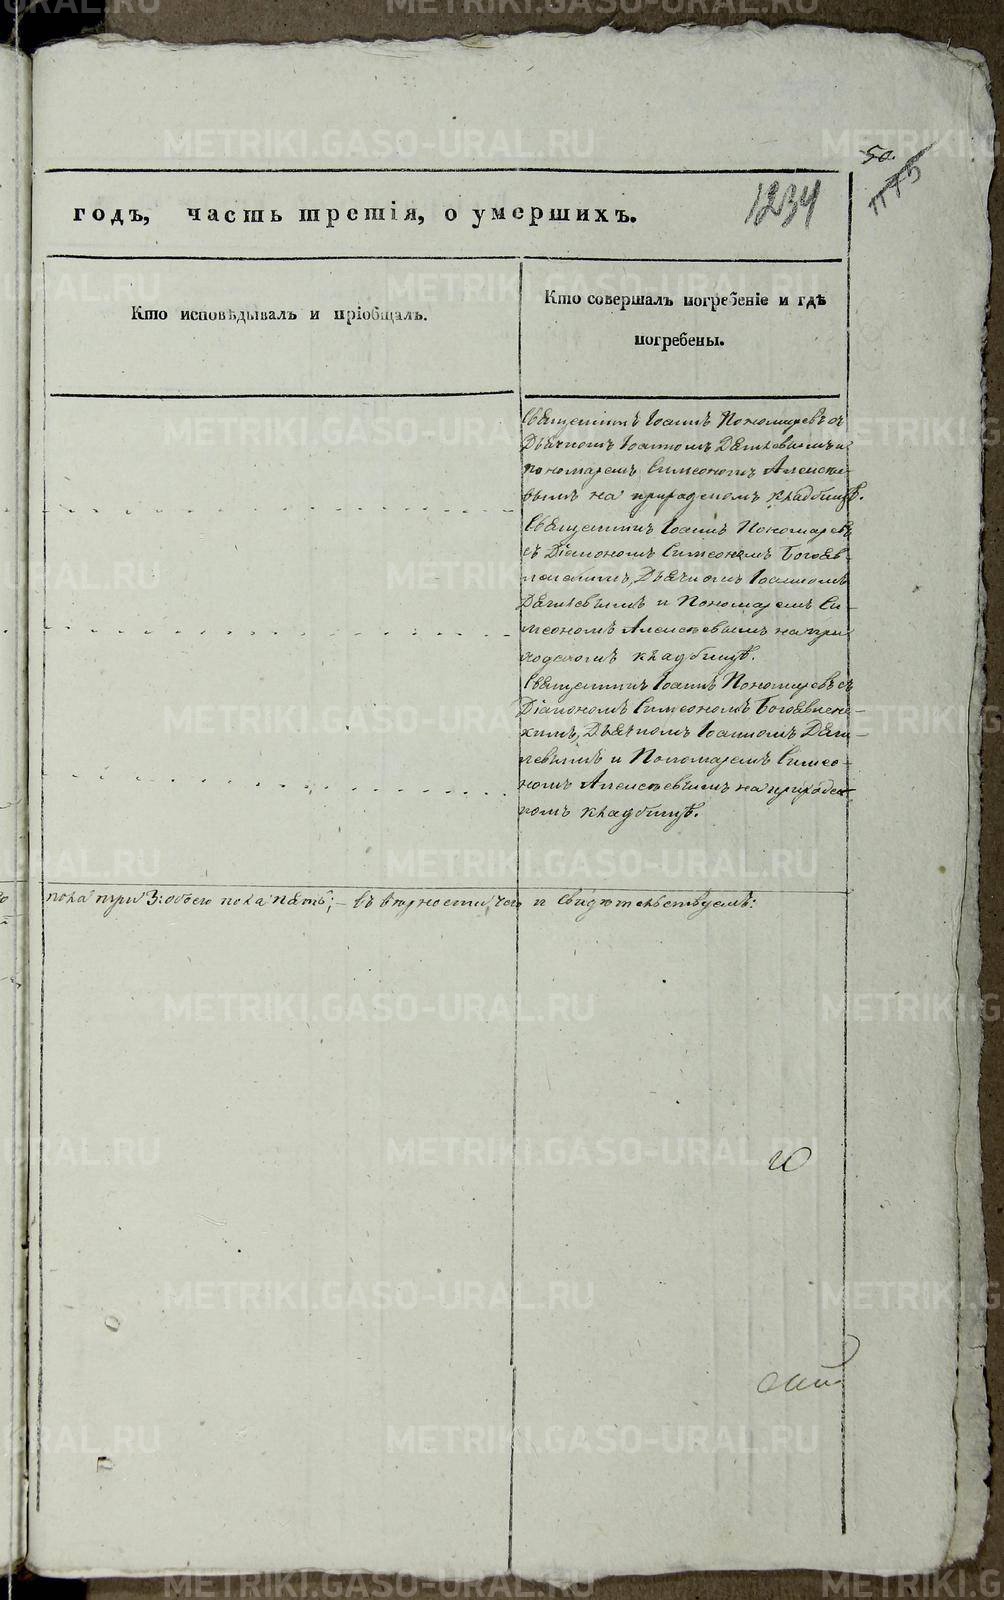 50.
1234
годъ, часть третія, о умершихъ.
Кто исповѣдывалъ и пріобщалъ.
Кто совершалъ погребеніе и гдѣ
погребены.
Священникъ Іоаннъ Пономаревъ съ
Дьячкомъ Іоанномъ и
пономаремъ Симеономъ Алексѣе-
вымъ на приходскомъ кладбищѣ.
Священникъ Іоаннъ Пономаревъ
съ Діакономъ Симеономъ Богояв-
ленскимъ, Дьячкомъ Іоанномъ
и Пономаремъ Си-
меономъ Алексѣевымъ на при-
ходскомъ кладбищѣ.
Священникъ Іоаннъ Пономаревъ съ
Діакономъ Симеономъ Богоявленс-
кимъ, Дьячкомъ Іоанномъ
и Пономаремъ Симео-
номъ Алексѣевымъ на приходск-
комъ кладбищѣ.
пола три 3: обоего пола пять; — въ вѣрности чего и свидѣтельствуемъ:
METRIKI.GASO-URAL.RU